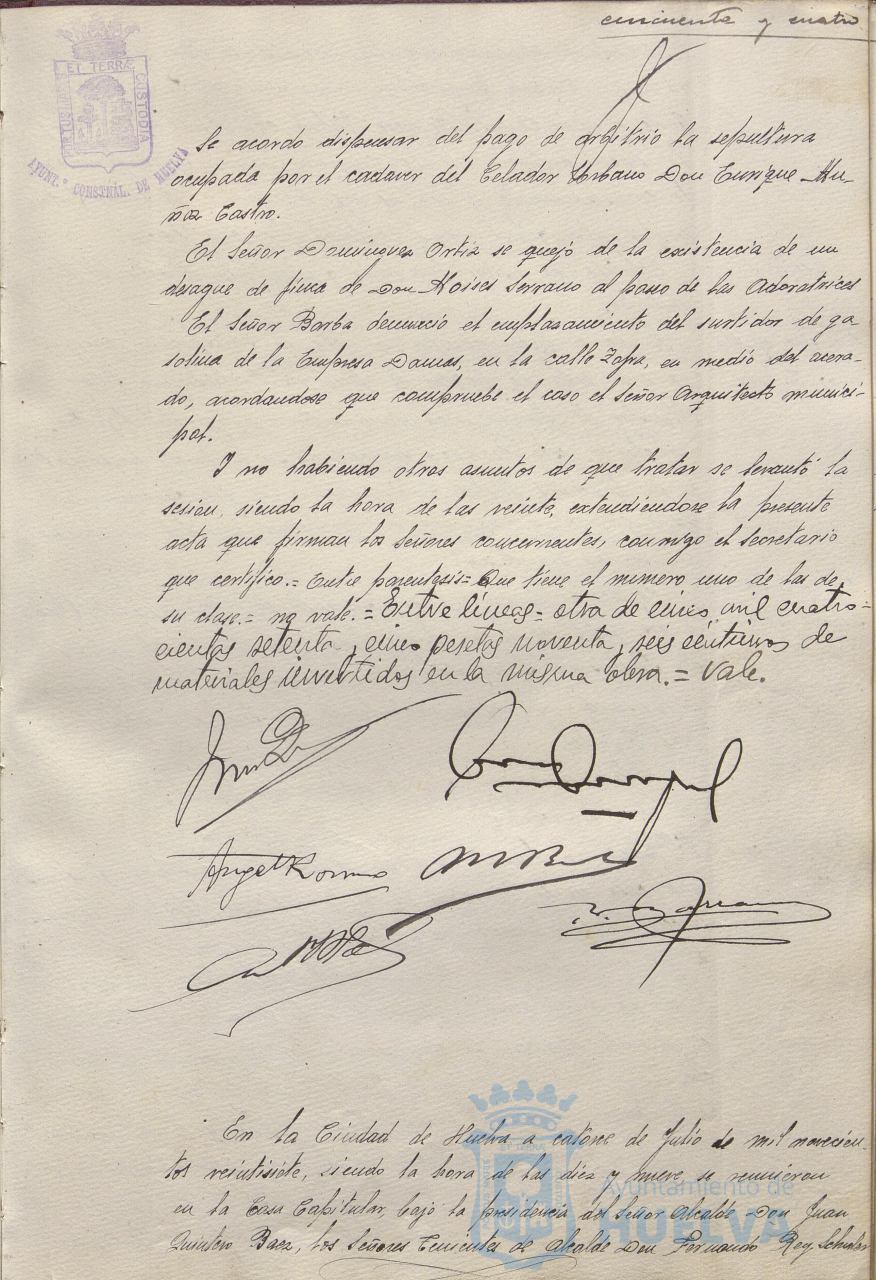 cincuenta y cuatro
ET TERRÆ CUSTODIA
AYUNT.º CONSTNAL. DE HUELVA
Se acordo dispensar del pago de arbitrio la sepultura
ocupada por el cadaver del Celador Urbano Don Enrique Mu-
ñoz Castro.
El Señor Dominguez Ortiz se quejó de la existencia de un
desague de finca de Don Moises Serrano al paseo de las Adoratrices
El Señor Borba denunció el emplazamiento del surtidor de ga
solina de la Empresa Damas, en la calle Zafra, en medio del acera-
do, acordandose que compruebe el caso el Señor Arquitecto munici-
pal.
Y no habiendo otros asuntos de que tratar se levantó la
sesion, siendo la hora de las veinte, extendiendose la presente
acta que firman los Señores concurrentes, conmigo el secretario
que certifico.= Entre parentesis= Que tiene el numero uno de las de
su clase.= no vale.= Entre líneas= otra de cinco mil cuatro-
cientas setenta y cinco pesetas noventa y seis céntimos de
materiales invertidos en la misma obra.= Vale.
Angel Romero
En la Ciudad de Huelva a catorce de Julio de mil novecien-
tos veintisiete, siendo la hora de las diez y nueve, se reunieron
en la Casa Capitular, bajo la presidencia del Señor Alcalde Don Juan
Quintero Baez, los Señores Tenientes de Alcalde Don Fernando Rey
Ayuntamiento de
HUELVA